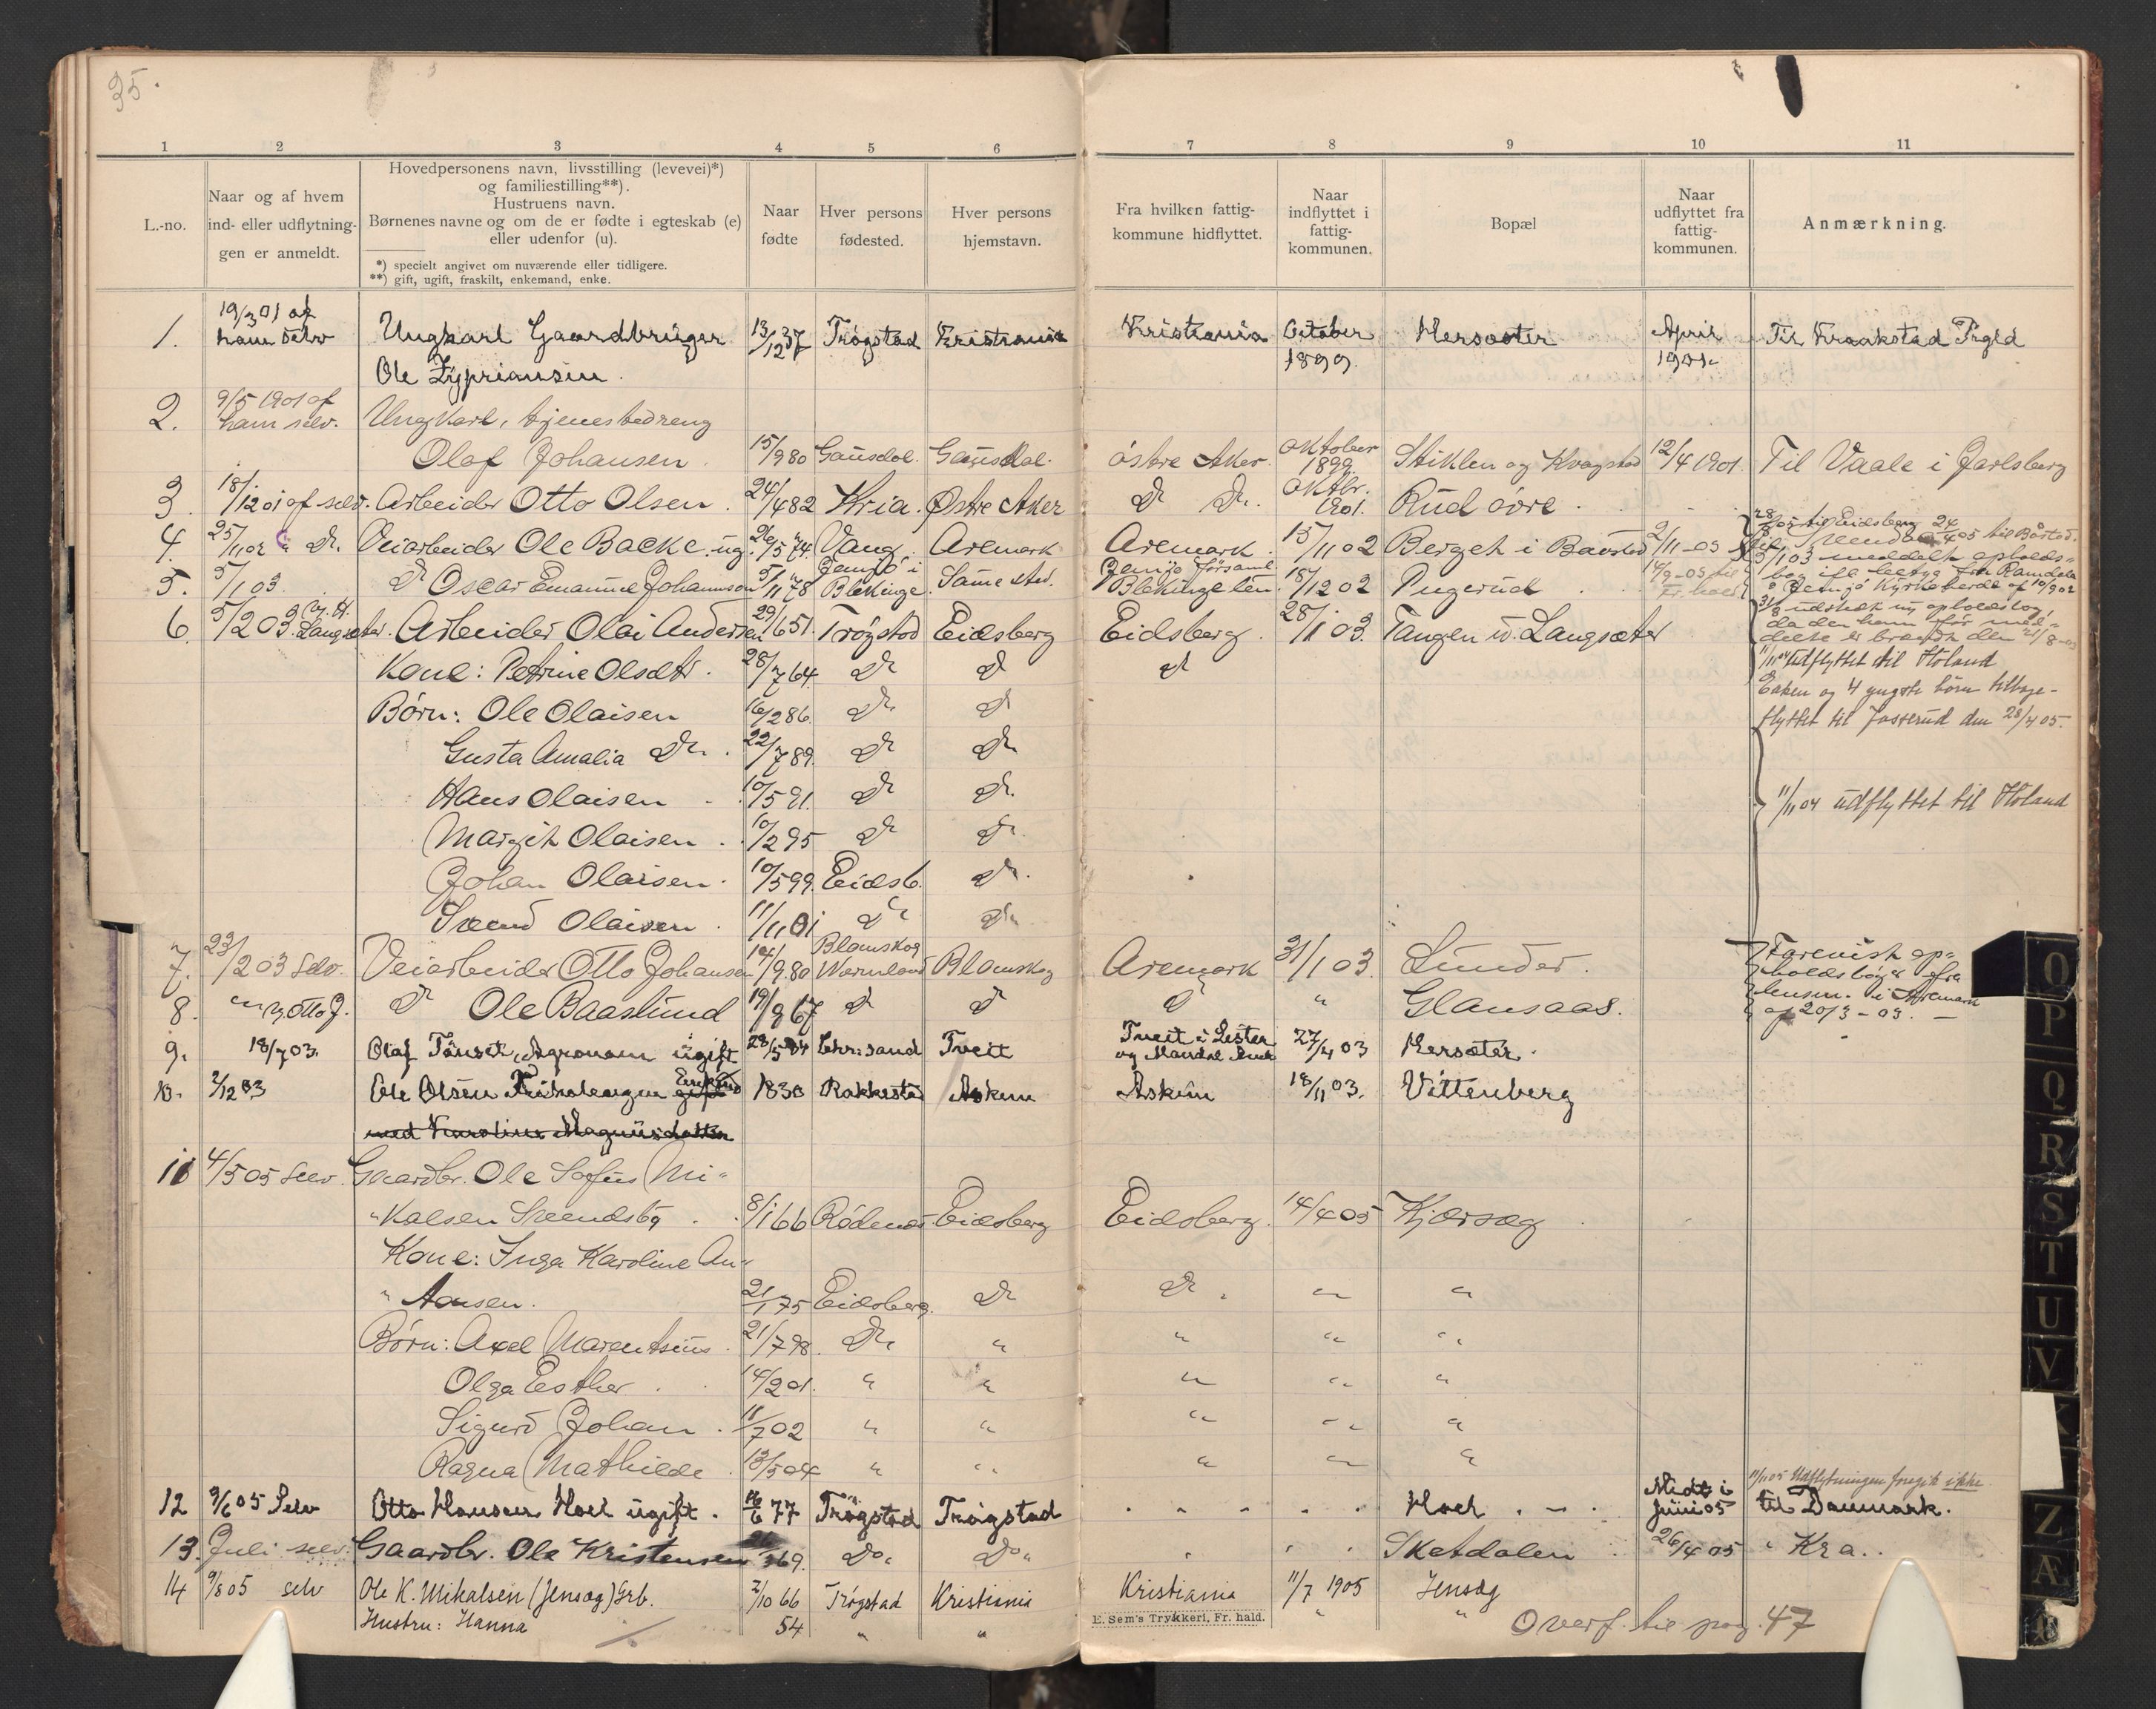 35.
1 2 3 4 5 6 7 8 9 10 11
L.-no.
Naar og af hvem
ind- eller udflytnin-
gen er anmeldt.
Hovedpersonens navn, livsstilling (levevei)*)
og familiestilling**).
Hustruens navn.
Børnenes navne og om de er fødte i egteskab (e)
eller udenfor (u).
*) specielt angivet om nuværende eller tidligere.
**) gift, ugift, fraskilt, enkemand, enke.
Naar
fødte
Hver persons
fødested.
Hver persons
hjemstavn.
Fra hvilken fattig-
kommune hidflyttet.
Naar
indflyttet i
fattig-
kommunen.
Bopæl
Naar
udflyttet fra
fattig-
kommunen.
Anmærkning.
19/3 01 af
1. ham selv Ungkarl Gaardbruger 13/12 37 Trøgstad Kristiania Kristiania October Hersæter April Til Kraakstad Prgld
Ole Zypriansen. 1899. 1901.
9/5 1901 af
2. ham selv. Ungkarl, tjenestedreng
Olaf Johansen 15/9 80 Gausdal. Gausdal. østre Aker. Oktober 1899 Stiklen og Kragstad 12/4 1901. Til Vaale i Jarlsberg
3. 18/12 01 af selv. Arbeider Otto Olsen. 24/4 82 Kria. Østre Aker Do Do. Oktbr. 1901. Rud øvre.
4. 25/11 02 " Do. Veiarbeider Ole Backe. ug. 26/5 74. Vang. Aremark Aremark 15/11 02 Berget i Baastad 2/11-03
5. 5/1 03. Do Oscar Emanuel Johannson 5/11 78 Jemjö i Blekinge. Samme sted. Jemjö församl. Blekinge län 18/12 02 Pugerud 14/9-03 til Fr.hald
28/3 05 til Eidsberg 24/4 05 til Båstad.
5/1 03 meddelt opholds-
10/9 02
6. 5/2 03. Langsæter. Arbeider Olai Andersen 29/6 51. Trøgstad Eidsberg Eidsberg. 28/1 03. Tangen u. Langsæter
31/8 udstedt ny opholdsbog,
da den ham før med-
delte er brændt den 21/8-03
Kone: Petrine Olsdtr. 28/7 64. Do Do Do
11/11 04 Udflyttet til Høland
Enken og 4 yngste børn tilbage-
flyttet til Josserud den 28/4 05.
Børn: Ole Olaisen 16/2 86. Do Do
Gusta Amalia Do. 22/7 89. Do Do
Hans Olaisen 10/5 91. Do Do. 11/11 04 udflyttet til Høland
Margit Olaisen. 10/2 95 Do Do
Johan Olaisen. 10/5 99. Eidsb. Do.
Svend Olaisen. 11/11 01 Do Do
7. 23/2 03 Selv. Veiarbeider Otto Johansen 14/9 80 Blomskog Wärmland Blomskog Aremark 31/1 03. Sunder.
Forevist op-
holdsbøger fra
lensm. i Aremark
af 20/3-03.
8. Otto J. Do Ole Baaslund 19/8 67 Do Do Do " Glansaas.
9. 18/7 03. Olaf Tønset, Agronom ugift 28/5 84 Chr.sand Tveit Tveit i Lister og Mandal Amt 27/4 03 Hersæter.
10. 2/12 03 Ole Olsen Frikaleengen gift Enkemand 1830 Rakkestad Askim Askim 18/11 03. Vittenberg
med Karoline Magnusdatter
11 4/5 05 Selv. Gaardbr. Ole Sofus Mi-
"kalsen Svendsby. 8/1 66 Rødenæs. Eidsberg Eidsberg. 14/4 05 Kjørsæg
Kone: Inga Karoline An-
" tonsen. 21/1 75 Eidsberg. Do Do. " "
Børn: Axel Marentsius. 21/7 98. Do. " " " "
Olga Esther. 14/2 01. " " " " "
Sigurd Johan. 11/7 02 " " " " "
Ragna Mathilde 13/5 04 " " " " "
11/11 05 Udflytningen foregik ikke.
12 9/6 05 Selv Otto Hansen Hoel ugift. 16/6 77 Trøgstad Trøgstad Hoel Midt i Juni 05 til Danmark.
13. Juli selv. Gaardbr. Ole Kristensen 69. Do. Do. Sketdalen 26/4 05 " Kra..
14 9/8 05 selv Ole K. Mikalsen (Jensæg) Grb. 2/10 66 Trøgstad Kristiania Kristiania 11/7 1905 Jensæg
Hustru: Hanna 54 " " " "
E. Sem's Trykkeri, Fr. hald.
Overf. til pag. 47
O
P
Q
R
S
T
U
V
Z
Æ
Ø